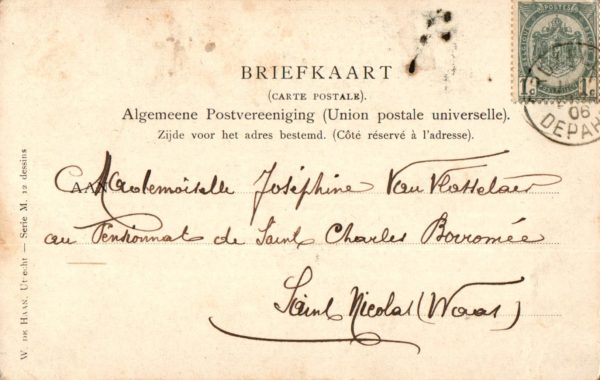 POSTES
1c 1c
06
DEPAR
BRIEFKAART
(CARTE POSTALE).
Algemeene Postvereeniging (Union postale universelle).
Zijde voor het adres bestemd. (Côté réservé à l'adresse).
AAN Mademoiselle Joséphine Van Vlasselaer
au Pensionnat de Saint Charles Borromée
Saint Nicolas (Waas)
W. DE HAAN, Utrecht — Serie M. 12 dessins